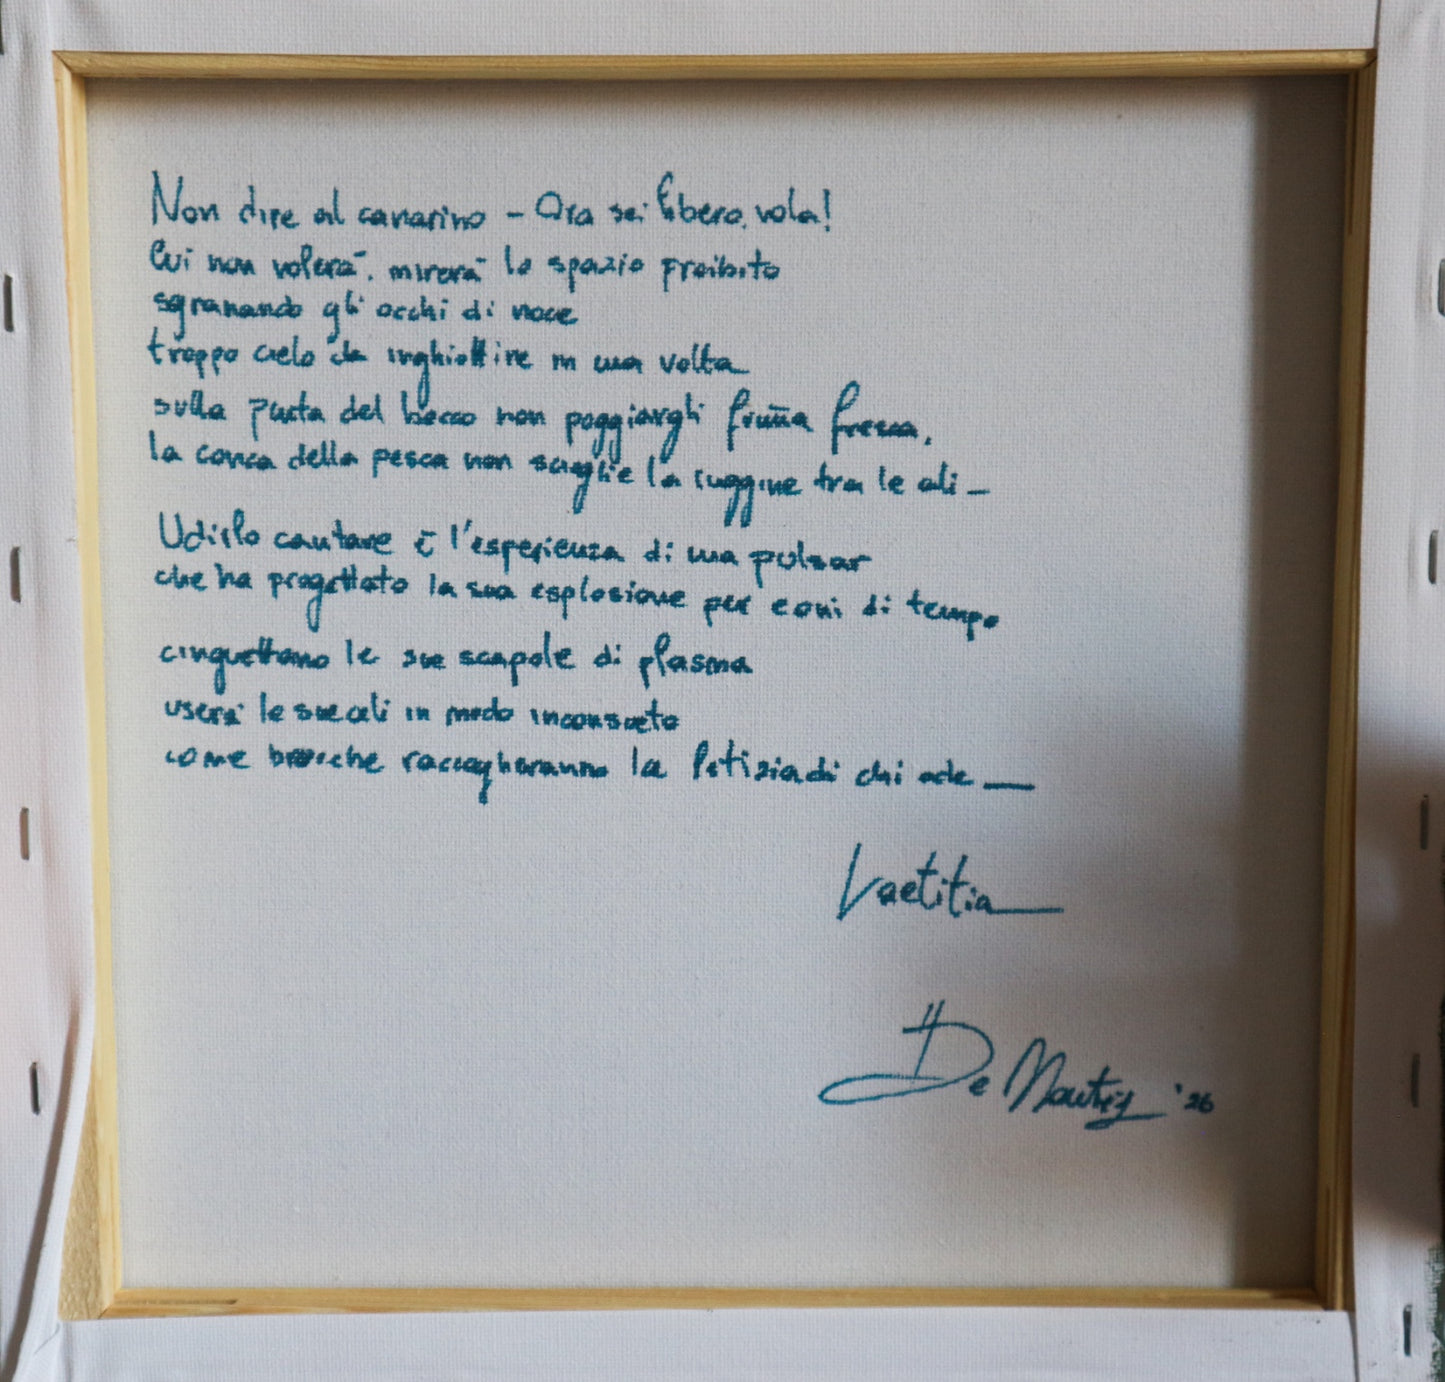 Non dire al canarino - Ora sei libero, vola!
Lui non volerà, mirerà lo spazio proibito
sgranando gli occhi di noce
troppo cielo da inghiottire in una volta
sulla punta del becco non poggiargli frutta fresca,
la conca della pesca non scioglie la ruggine tra le ali -
Udirlo cantare è l'esperienza di una pulsar
che ha progettato la sua esplosione per eoni di tempo
cinguettano le sue scapole di plasma
userà le sue ali in modo inconsueto
come brocche raccoglieranno la letizia di chi ode _
Laetitia
De '26